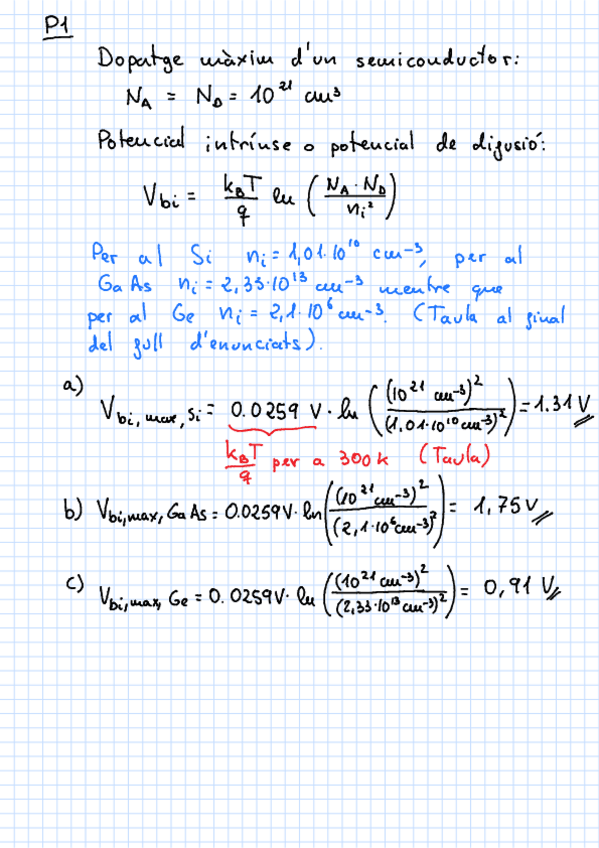 P1
Dopatge màxim d'un semiconductor:
N_A = N_D = 10^21 cm^3
Potencial intrínse o potencial de difusió:
V_bi = k_B T / q ln ( N_A · N_D / n_i^2 )
Per al Si n_i = 1,01·10^10 cm^-3, per al
GaAs n_i = 2,33·10^13 cm^-3 mentre que
per al Ge n_i = 2,1·10^6 cm^-3. (Taula al final
del full d'enunciats).
a) V_bi, max, Si = 0.0259 V · ln ( (10^21 cm^-3)^2 / (1,01·10^10 cm^-3)^2 ) = 1.31 V
k_B T / q per a 300 k (Taula)
b) V_bi,max, GaAs = 0.0259V · ln ( (10^21 cm^-3)^2 / (2,1·10^6 cm^-3)^2 ) = 1,75 V
c) V_bi, max, Ge = 0.0259V · ln ( (10^21 cm^-3)^2 / (2,33·10^13 cm^-3)^2 ) = 0,91 V